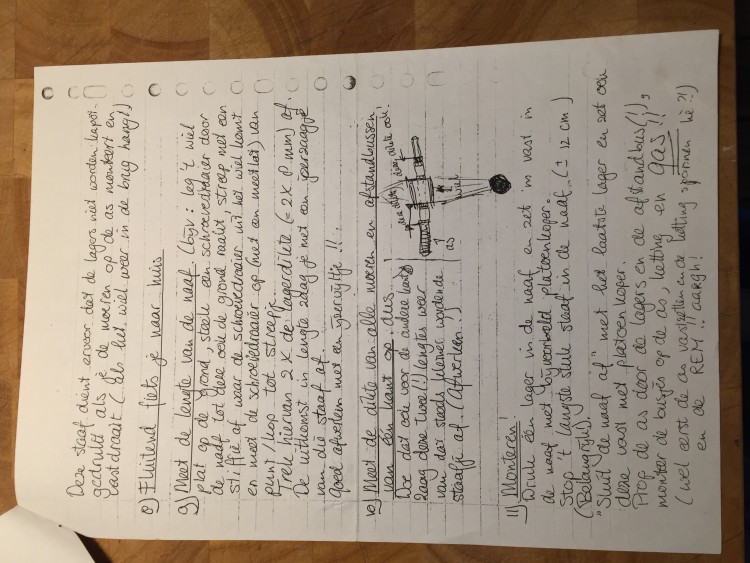 Deze staaf dient ervoor dat de lagers niet worden kapot-
gedrukt als je de moeren op de as monteert en
vastdraait (als het wiel weer in de brug hangt)
8) Fluitend fiets je naar huis
9) Meet de lengte van de naaf. (bijv: leg 't wiel
plat op de grond, steek een schroevedraaier door
de naaf tot deze ook de grond raakt streep met een
stiftje af waar de schroevedraaier uit het wiel komt
en meet de schroevedraaier op (met een meetlat) van
punt/kop tot streepje.
Trek hiervan 2x de lagerdikte (= 2x 8 mm) af.
De uitkomst in lengte zaag je met een ijzerzaagje
van die staaf af.
Goed afwerken met een ijzervijltje!!
10) Meet de dikte van alle moeren en afstandbussen
van één kant op: dus:
Doe dat ook voor de andere kant
Zaag deze twee(!) lengtes weer
van dat steeds kleiner wordende
staafje af. (Afwerken!)
deze dikte
deze dikte ook!
wiel
as
11) Monteren!
Druk één lager in de naaf en zet 'm vast in
de naaf met bijvoorbeeld platoenkoper.
Stop 't langste stuk staaf in de naaf. (± 12 cm)
(Belangrijk)
"Sluit de naaf af" met het laatste lager en zet ook
deze vast met platoenkoper.
Prop de as door de lagers en de afstandbus(!),
monteer de busjes op de as, ketting en gas!!
(wel eerst de as vastzetten en de ketting spannen hè?!)
en de REM!! aargh!